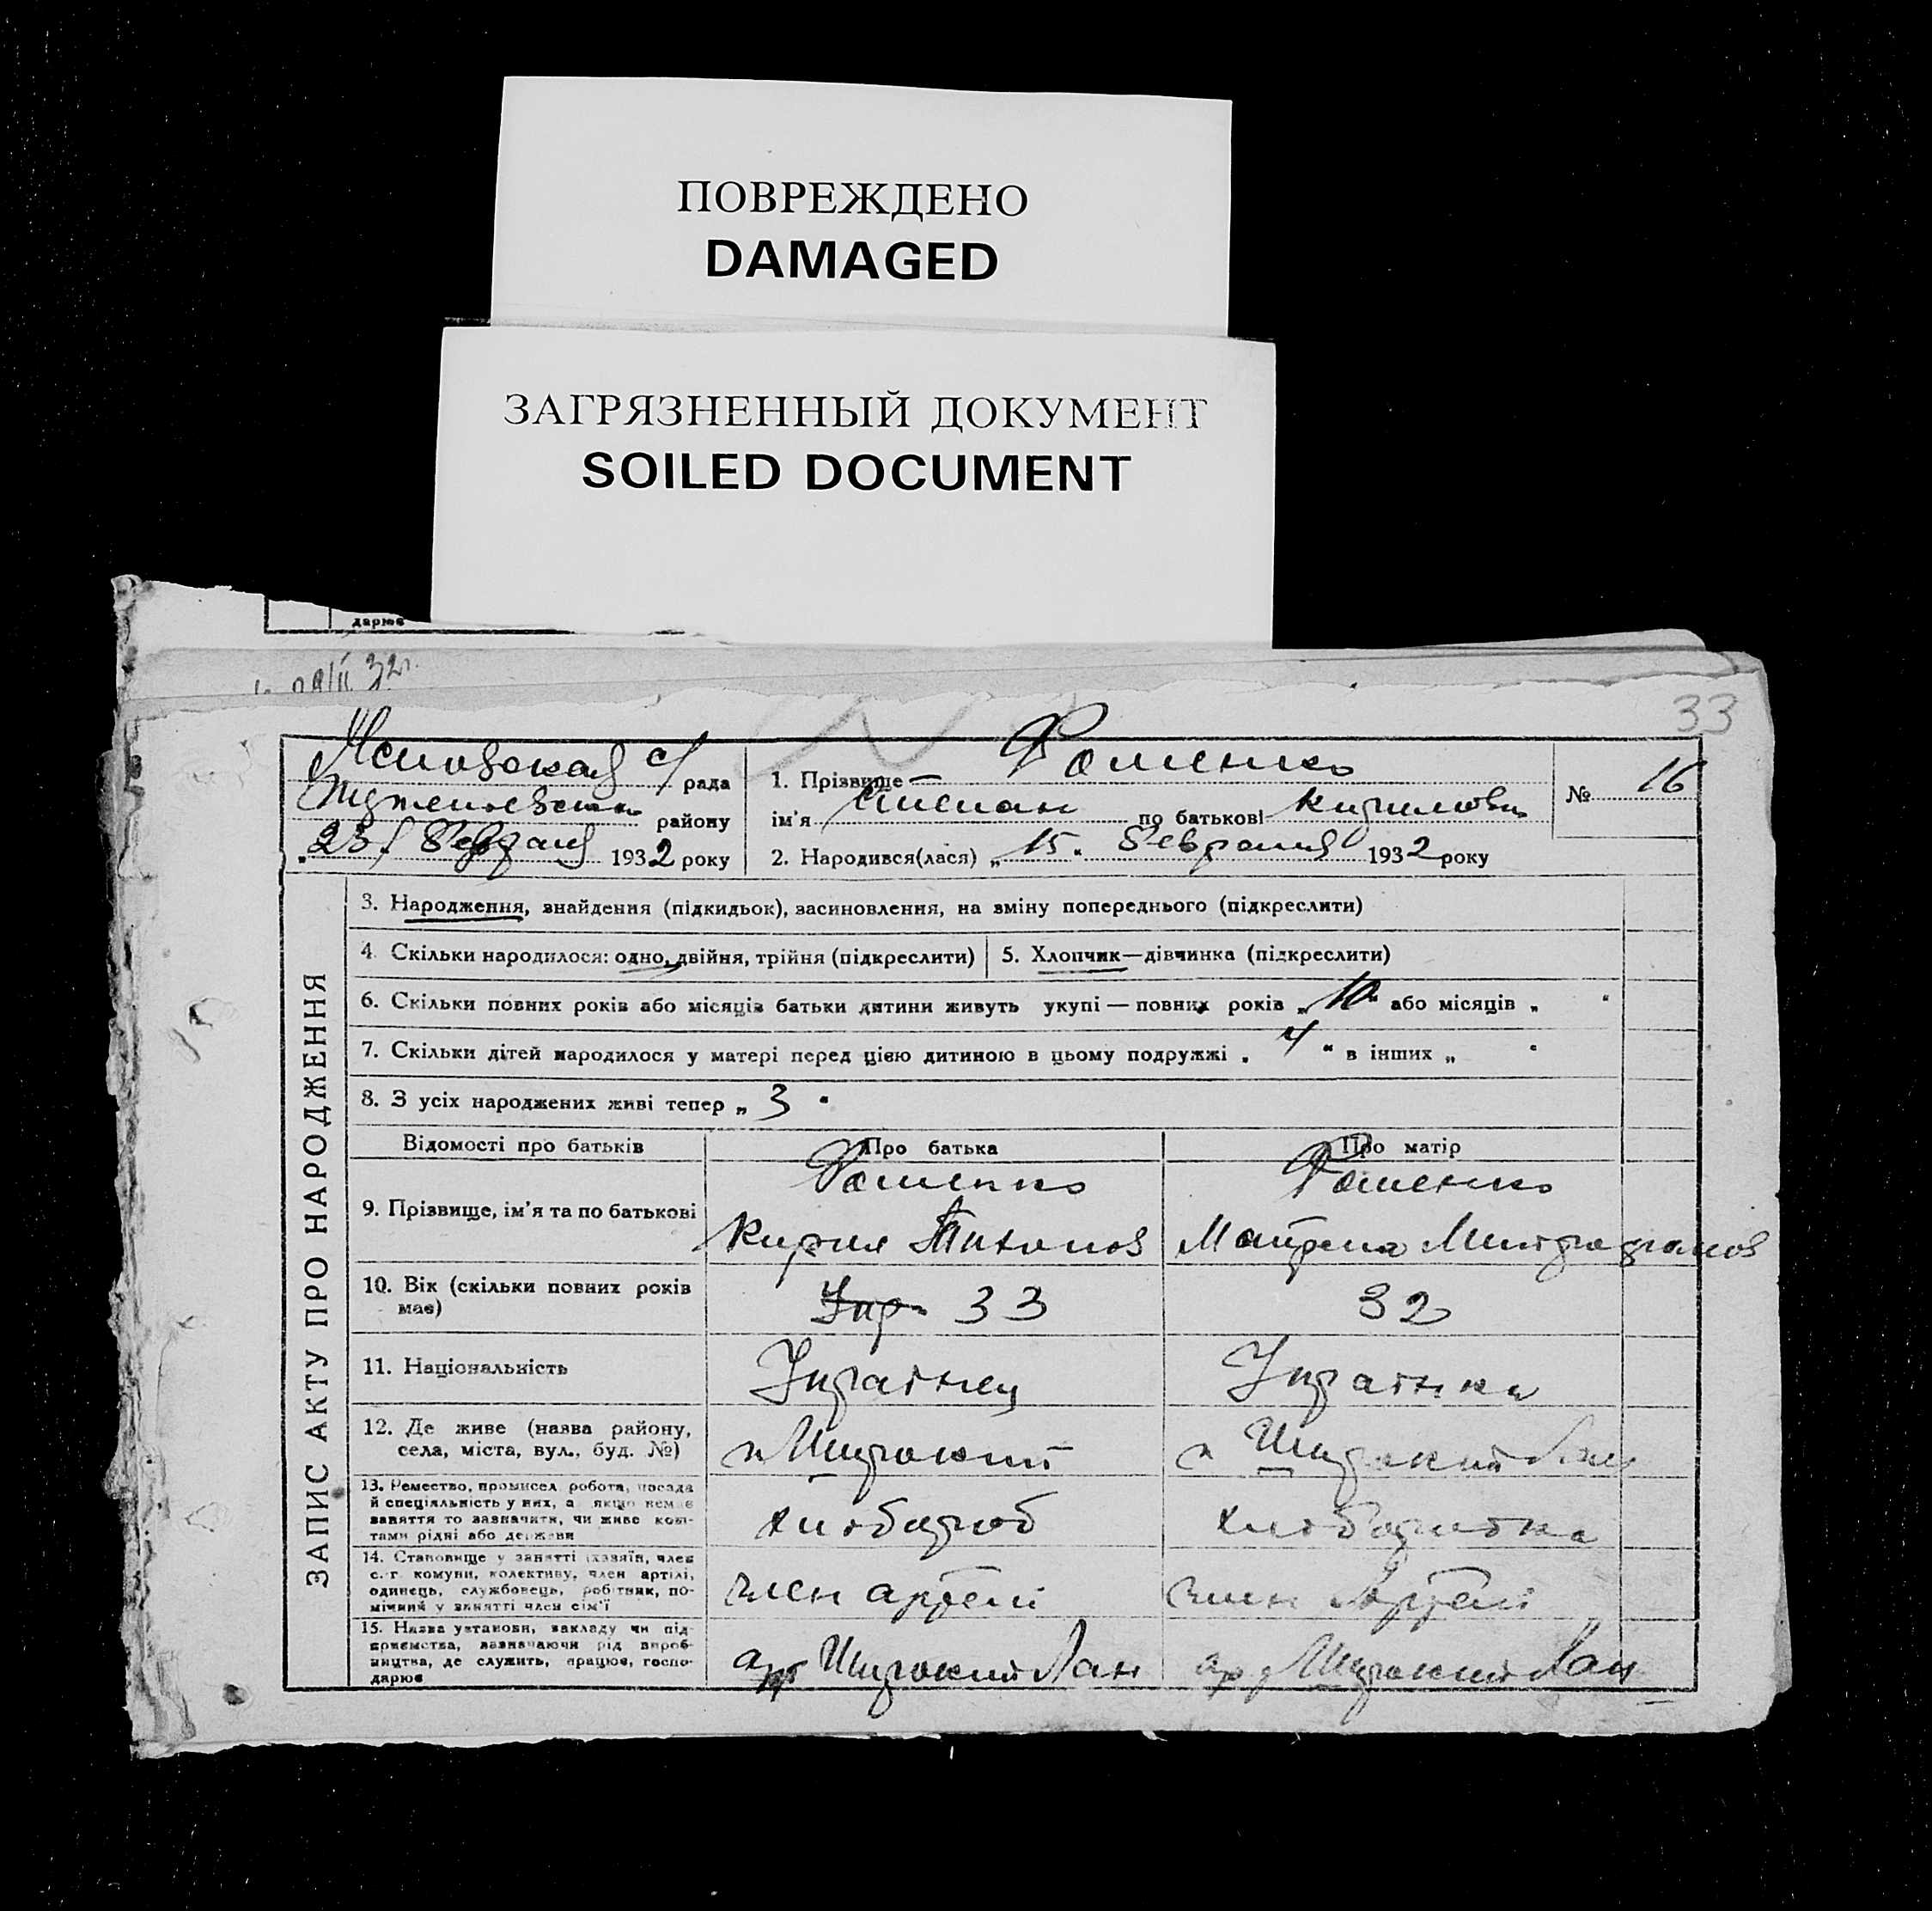 ПОВРЕЖДЕНО
DAMAGED
ЗАГРЯЗНЕННЫЙ ДОКУМЕНТ
SOILED DOCUMENT
дарює
32г.
33
с/рада
району
"23" Февраля 1932 року
1. Прізвище — Фоменко
ім'я Степан по батькові Кирилович
2. Народився(лася) „15" Февраля 1932 року
№ 16
ЗАПИС АКТУ ПРО НАРОДЖЕННЯ
3. Народження, знайдення (підкидьок), засиновлення, на зміну попереднього (підкреслити)
4. Скільки народилося: одно, двійня, трійня (підкреслити)
5. Хлопчик—дівчинка (підкреслити)
6. Скільки повних років або місяців батьки дитини живуть укупі — повних років „10" або місяців „ "
7. Скільки дітей народилося у матері перед цією дитиною в цьому подружжі „4" в інших „ "
8. З усіх народжених живі тепер „3"
Відомості про батьків
Про батька
Про матір
9. Прізвище, ім'я та по батькові
Фоменко
Кирил Тихонов
Фоменко
Матрена Митрофанов
10. Вік (скільки повних років має)
Укр 33
32
11. Національність
Украінец
Украінка
12. Де живе (назва району,
села, міста, вул., буд. №)
п Широкий
п Широкий Лан
13. Ремество, промисел робота, посада
й спеціяльність у них, а якщо немає
заняття то зазначити, чи живе кош-
тами рідні або держави
хлібороб
хліборобка
14. Становище у занятті (хазяїн, член
с.-г. комуни, колективу, член артілі,
одинець, службовець, робітник, по-
мічний у занятті член сім'ї
член артелі
член Артелі
15. Назва установи, закладу чи під-
приємства, зазначаючи рід вироб-
ництва, де служить, працює, госпо-
дарює
арт Широкий Лан
ар Широкий Лан